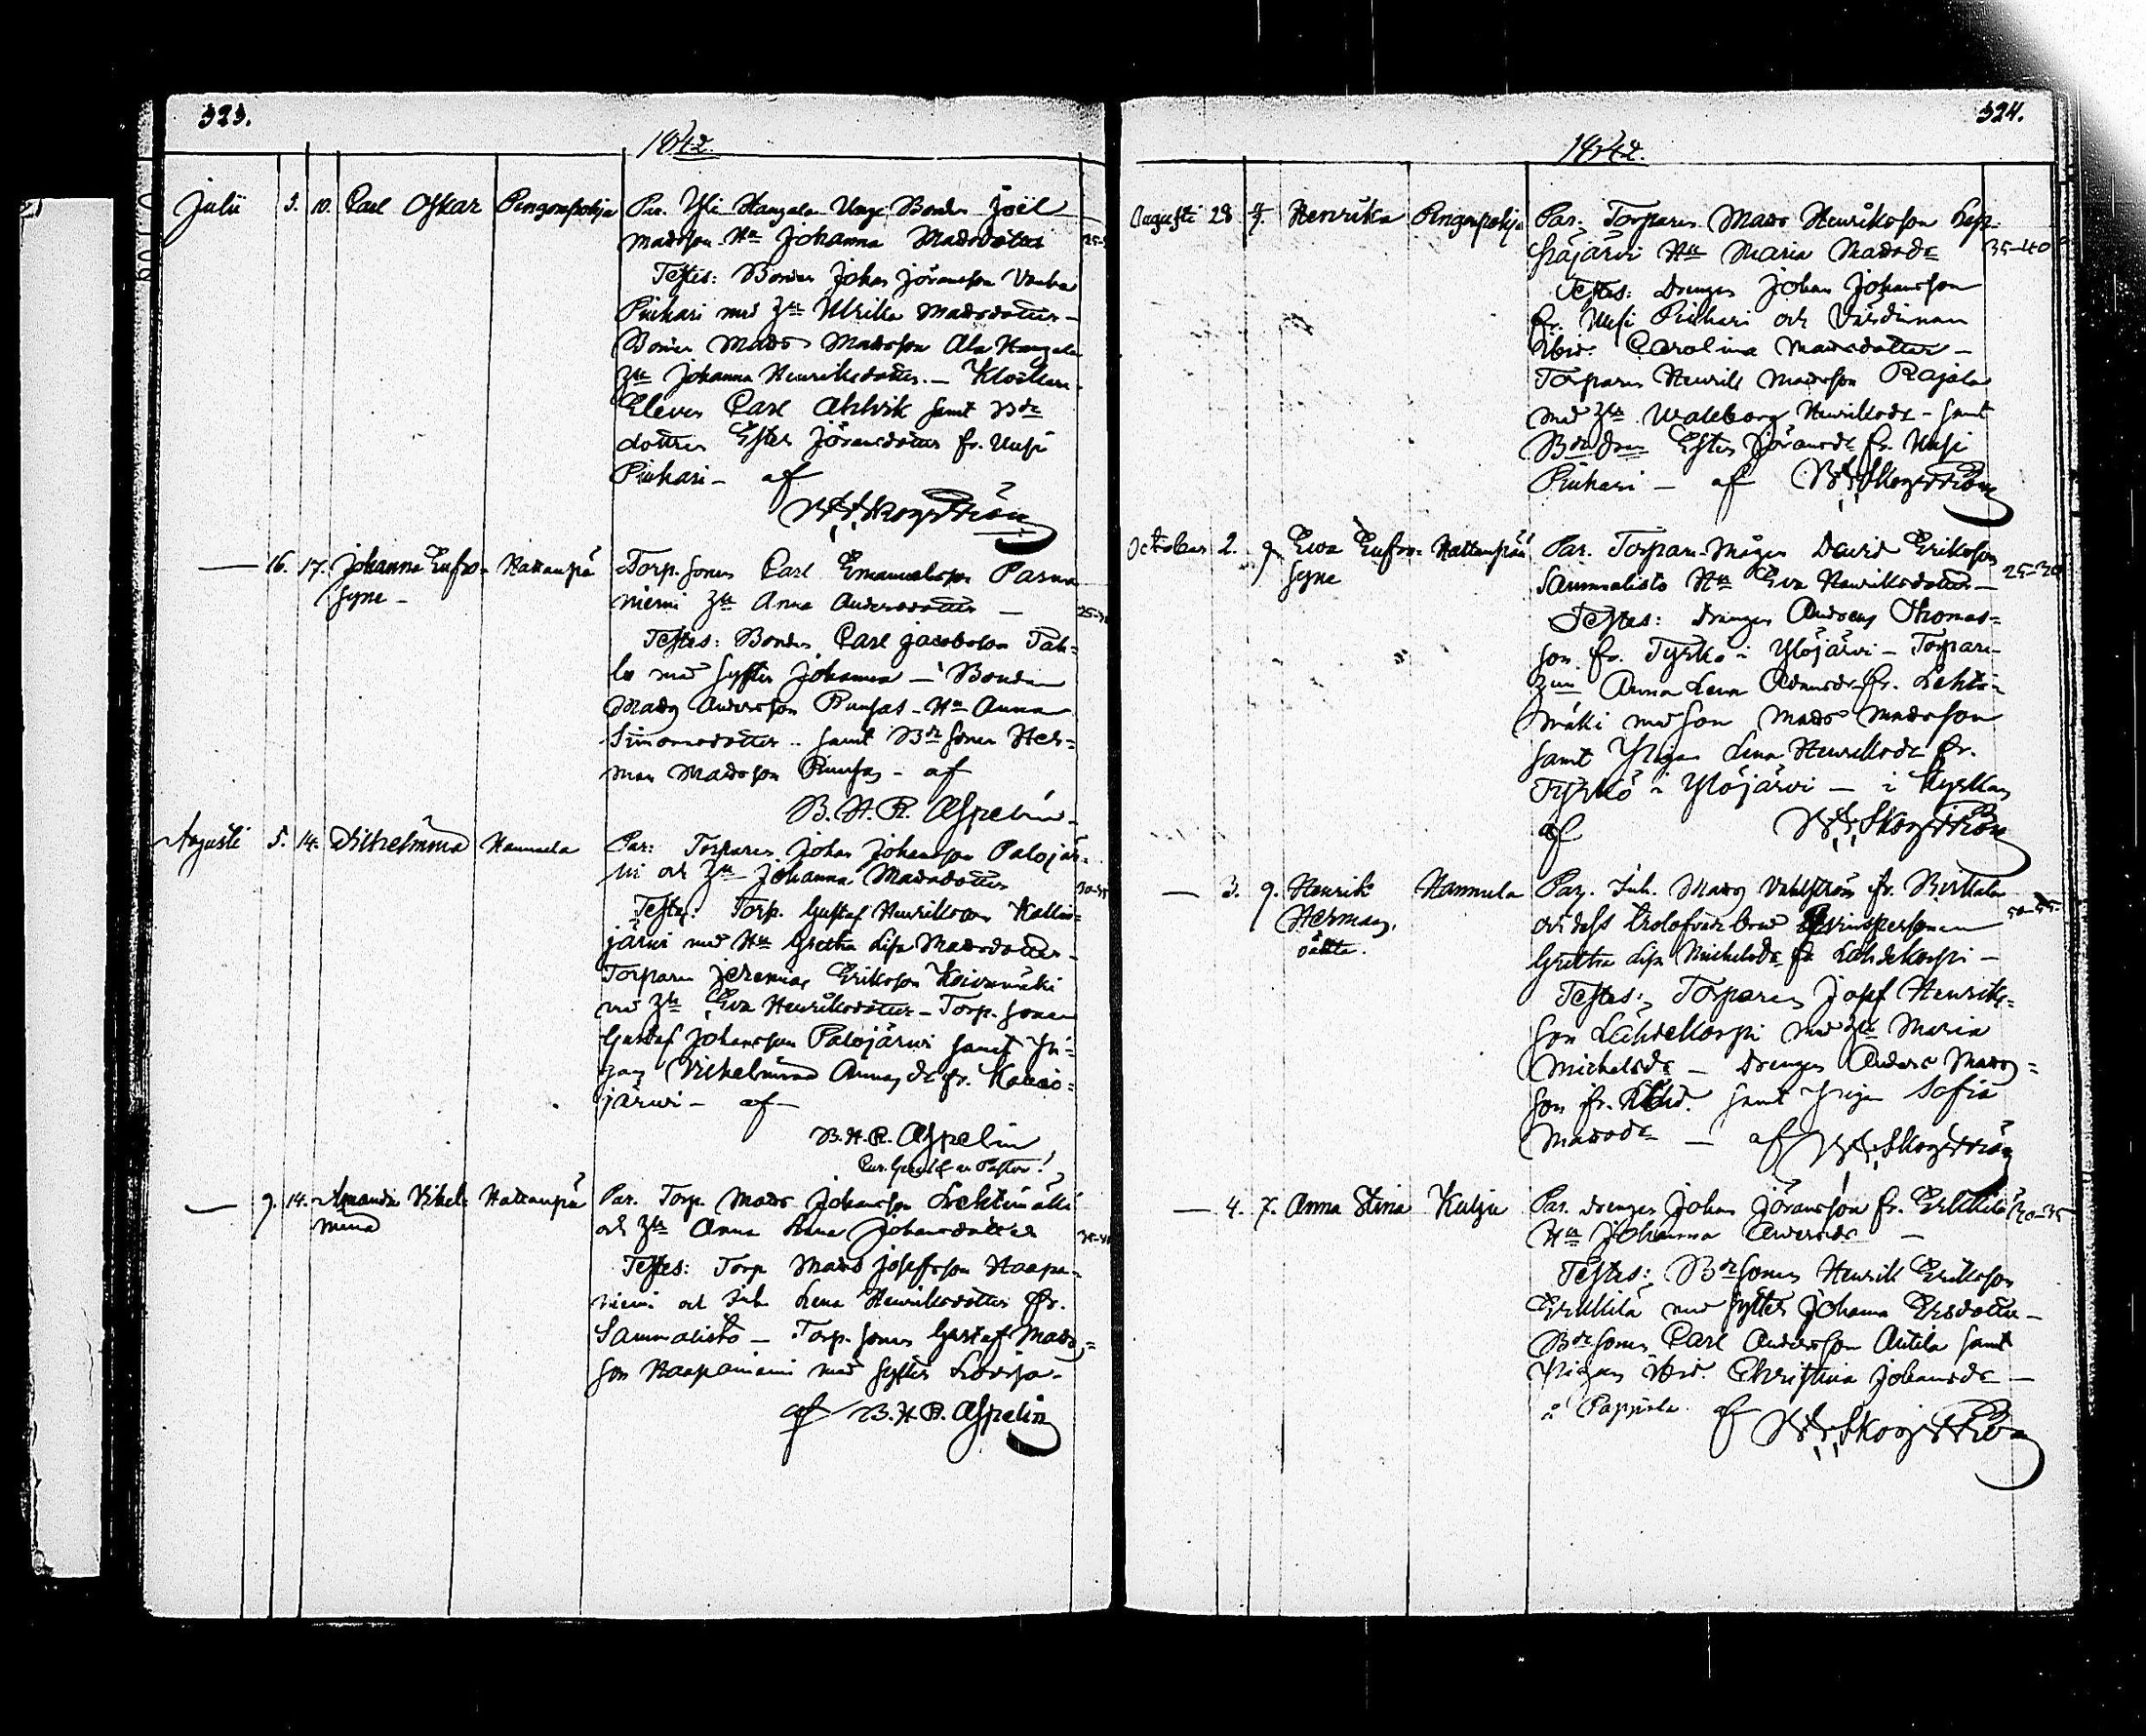 323.
1842.
Julii 5. 10. Carl Oskar Pengonpohja Par. Yli Hangala Unge Bonden Joël
Madsson Hu Johanna Madsdotter
Testes: Bonden Johan Jöransson Vanha
Piukari med Hu Ulrika Madsdotter –
Bonden Mads Madsson Ala Hangala
Hu Johanna Henriksdotter. – Klockare
Eleven Carl Ahlvik samt Bde
dottren Ester Jöransdotter fr. Uusi
Piukari – af
Skogström
— 16. 17. Johanna Eufro- Hattanpä Torp. sonen Carl Emanuelsson Parma
syne – niemi Hu Anna Andersdotter — 25-30
Testes: Bonden Carl Jacobsson Pah=
lo med syster Johanna – Bonden
Mads Andersson Punsas – Hu Anna
Simonsdotter .. samt Bde sonen Her=
man Madsson Punsas – af
B. H. R. Aspelin.
Augusti 5. 14. Vilhelmina Hannula Par: Torparen Johan Johansson Palojär-
vi och Hu Johanna Madsdotter 30-35
Testes: Torp. Gustaf Henriksson Kallio-
järvi med Hu Gretha Lisa Madsdotter –
Torparen Jeremias Eriksson Koivumäki
med Hu Eva Henriksdotter – Torp. sonen
Gustaf Johansson Palojärvi samt Pi=
gan Vilhelmina Annas dr fr. Kallio=
järvi – af
B. H. R. Aspelin
— 9. 14. Amanda Vilhel- Hattanpä Par. Torp. Mads Johansson Lehtimäki
mina och Hu Anna Lena Johansdotter
Testes: Torp Mads Josefsson Haapa-
niemi och Lena Henriksdotter fr.
Sammalisto – Torp. sonen Gustaf Mads=
son Haapaniemi med syster Lovisa –
af B. H. R. Aspelin
324.
1842.
Augusti 28 4. Henrika Pengonpohja Par. Torparen Mads Henriksson Lep-
päjärvi Hu Maria Madsdr 35-40
Testes: Drengen Johan Johansson
fr. Uusi Piukari och Värdinnan
ibid. Carolina Madsdotter –
Torparen Henrik Madsson Rajala
med Hu Walborg Henriksdr – samt
Bdedren Ester Jöransdr fr. Uusi
Piukari – af Skogström
October 2. 9. Ewa Eufro- Hattanpää Par. Torpare Mågen David Eriksson
syne Sammalisto Hu Eva Henriksdotter – 25-30
Testes: Drengen Andreas Thomas=
son fr. Tyrkö i Ylöjärvi – Torpare-
Hun Anna Lena Adamsdr fr. Lehti-
mäki med son Mads Madsson
samt Pigan Lena Henriksdr fr.
Tyrkö i Ylöjärvi – i Kyrkan
af Skogström
— 3. 9. Henrik Hannula Par. Inh. Mads Vahlström fr. Birkala 50-55
Herman, och dess trolofvade brud Qvinspersonen
oäkta. Gretha Lisa Michelsdr fr. Lähdekorpi –
Testes: Torparen Josef Henriks=
son Lähdekorpi med Hu Maria
Michelsdr – Drengen Anders Mads=
son fr. ibid. samt Pigan Sofia
Madsdr – af Skogström
— 4. 7. Anna Stina Kulju Par. Drengen Johan Jöransson fr. Erkkilä 30-35
Hu Johanna Andersdr —
Testes: Bde sonen Henrik Eriksson
Erkkilä med syster Johanna Ersdotter –
Bde sonen Carl Andersson Anttila samt
Pigan ibid. Christina Johansdr —
å Pappila. af Skogström